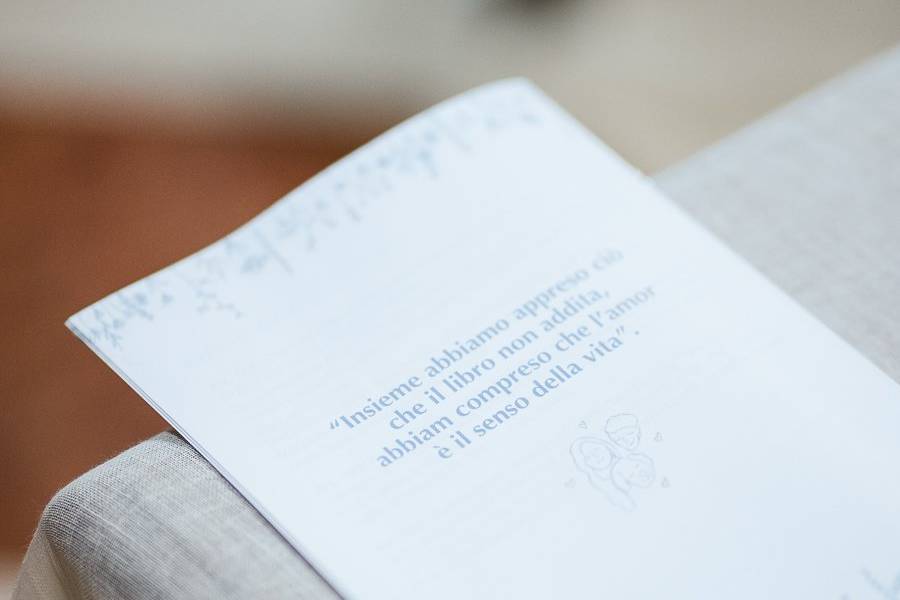 “Insieme abbiamo appreso ciò
che il libro non addita,
abbiam compreso che l’amor
è il senso della vita”.